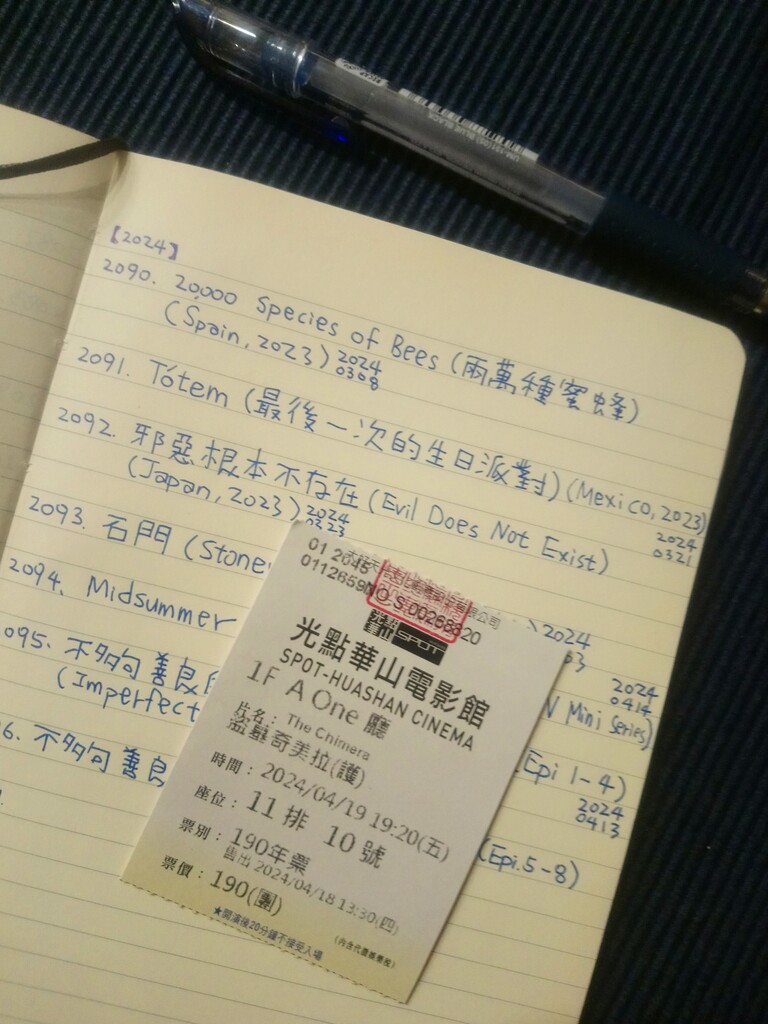 【2024】
2090. 20,000 Species of Bees (兩萬種蜜蜂)
(Spain, 2023) 2024 0308
2091. Tótem (最後一次的生日派對) (Mexico, 2023)
2024 0321
2092. 邪惡根本不存在 (Evil Does Not Exist)
(Japan, 2023) 2024 0323
2093. 石門 (Stone
2024
03
2094. Midsummer
2024
0414
095. 不夠善良
Mini Series)
(Imperfect
(Epi 1-4)
2024
0413
6. 不夠善良
(Epi.5-8)
01 2045
0112659
NO.S 00268820
光點華山 SPOT
光點華山電影館
SPOT-HUASHAN CINEMA
1F A One 廳
片名: The Chimera
盜墓奇美拉(護)
時間: 2024/04/19 19:20(五)
座位: 11 排 10 號
票別: 190年票
售出 2024/04/18 13:30(四)
票價: 190(團)
★開演後20分鐘不接受入場